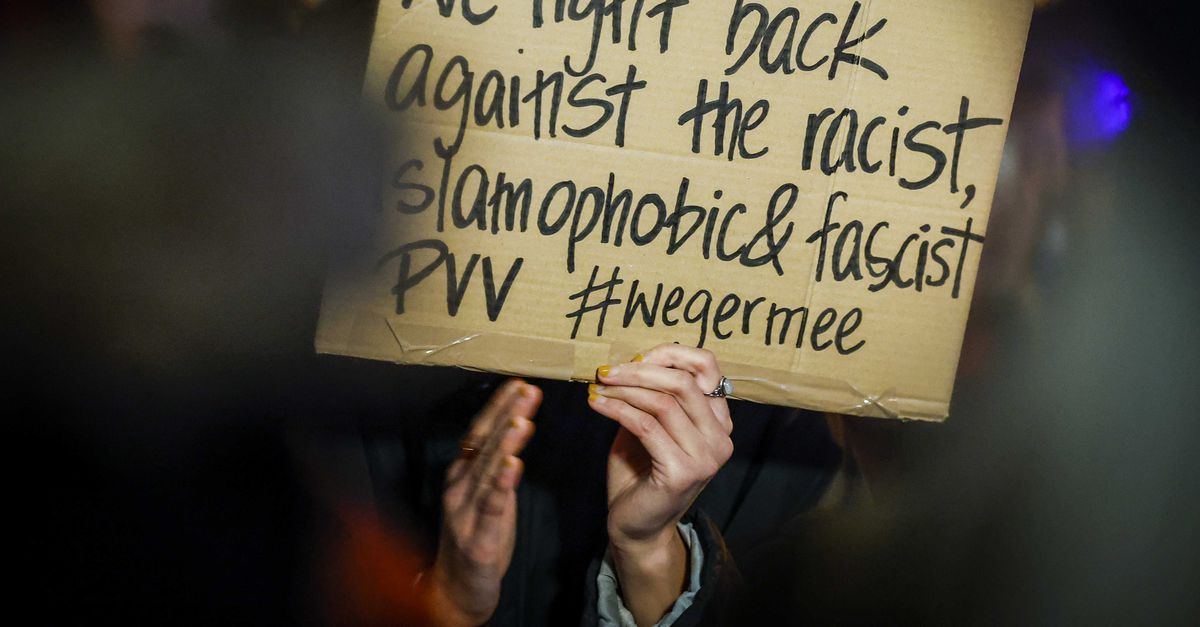 We fight back
against the racist,
slamophobic & fascist
PVV #wegermee